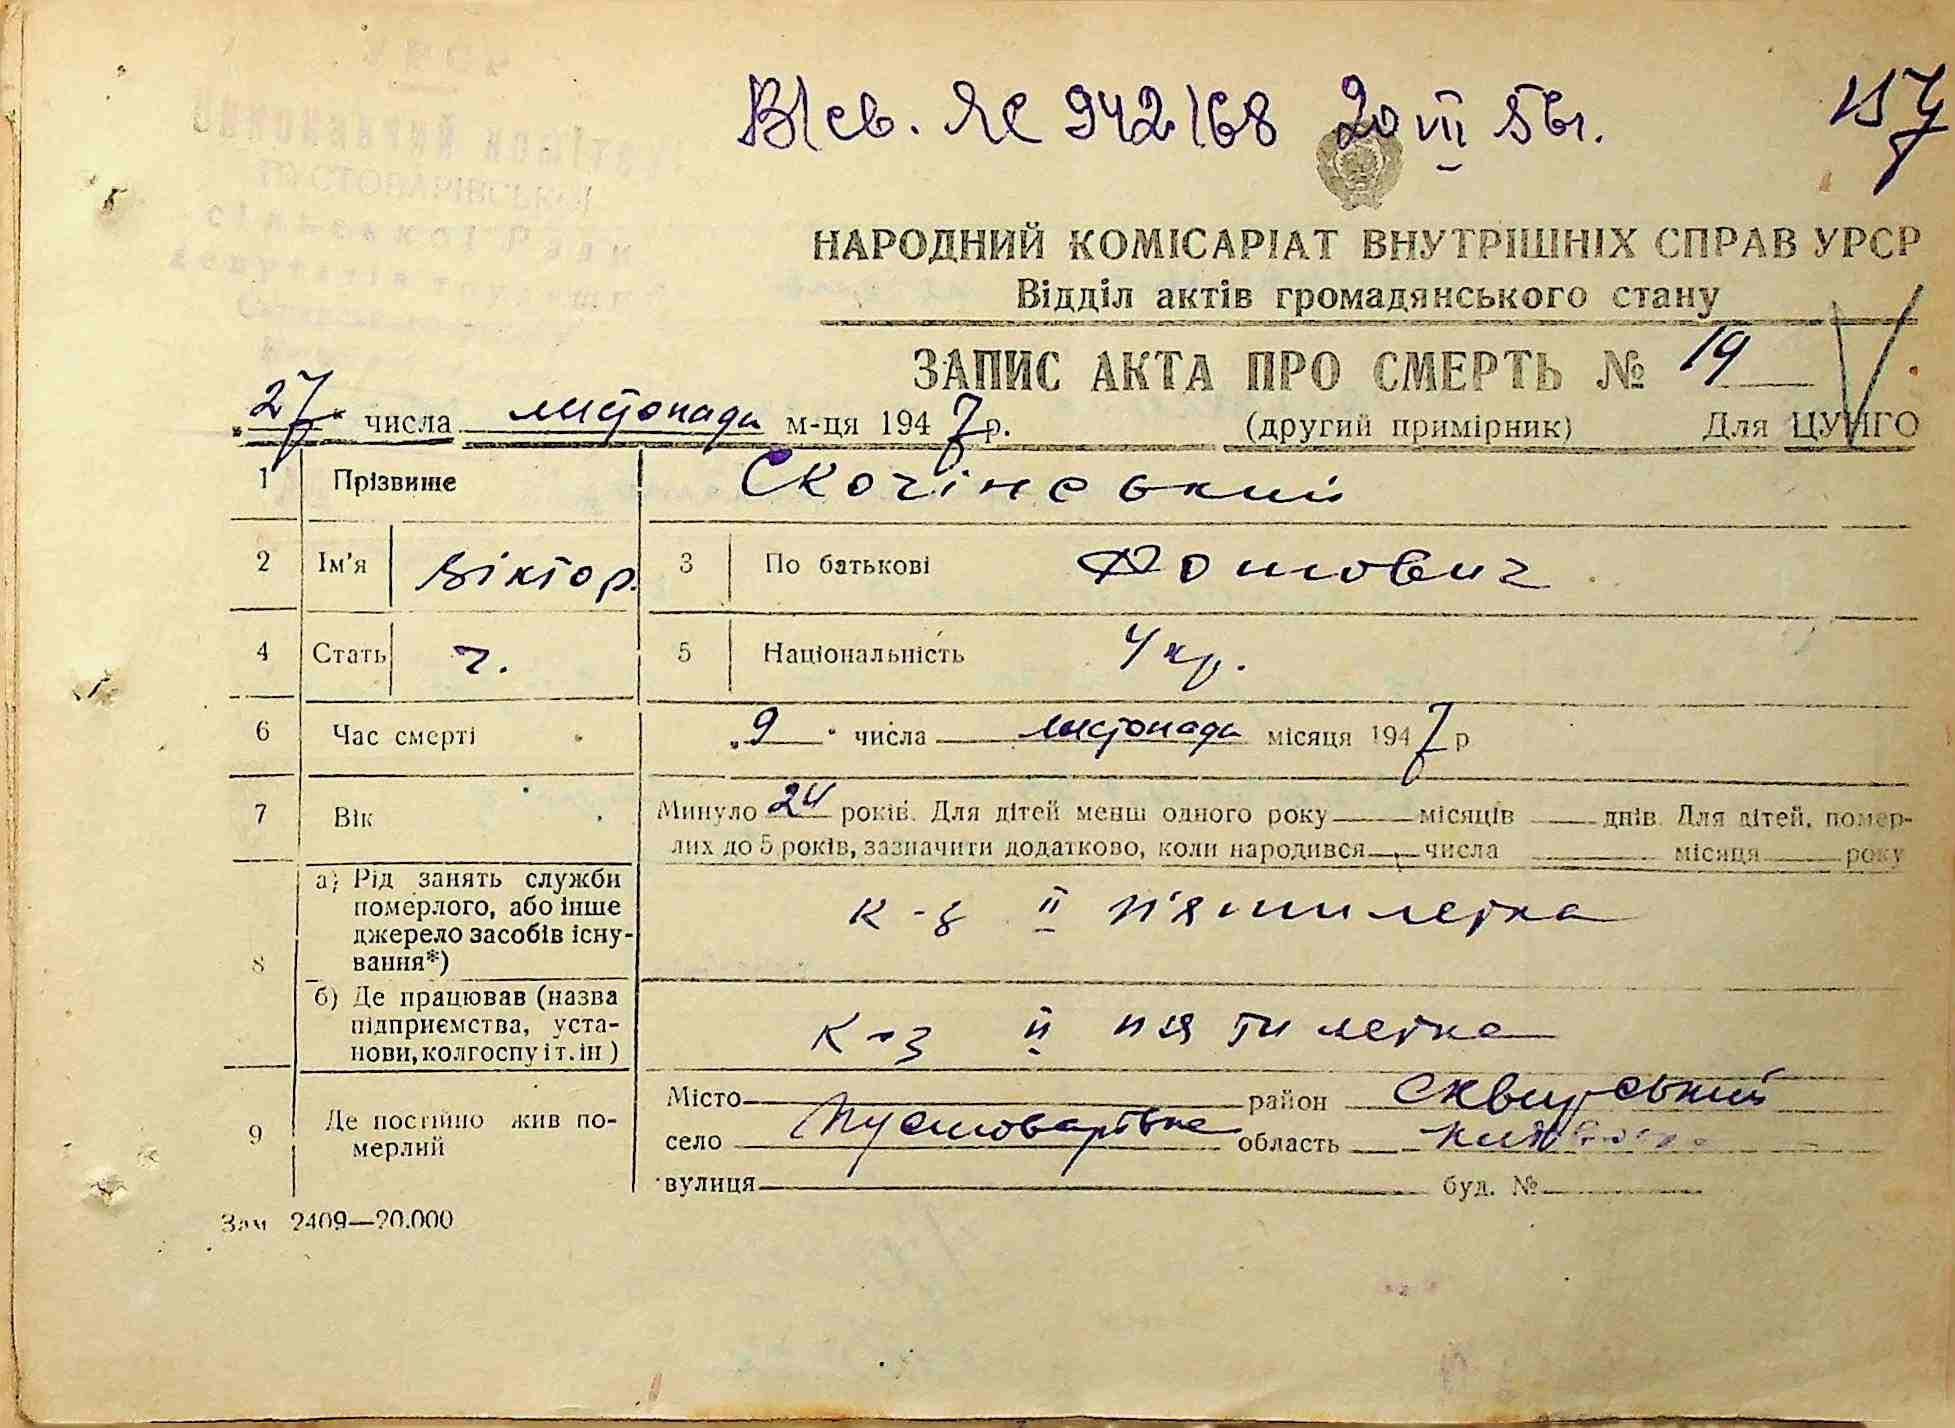 В/св. ЯС 942168 20 VII 56г. 157
УРСР
Виконавчий комітет
ПУСТОВАРІВСЬКОЇ
сільської Ради
депутатів трудящих
НАРОДНИЙ КОМІСАРІАТ ВНУТРІШНІХ СПРАВ УРСР
Відділ актів громадянського стану
ЗАПИС АКТА ПРО СМЕРТЬ № 19
„27“ числа листопада м-ця 1947 р. (другий примірник) Для ЦУНГО
1 Прізвище Скочінський
2 Ім'я Віктор. 3 По батькові
4 Стать ч. 5 Національність Укр.
6 Час смерті „9“ числа листопада місяця 1947 р
7 Вік Минуло 24 років. Для дітей менш одного року місяців днів. Для дітей, помер-
лих до 5 років, зазначити додатково, коли народився числа місяця року
8 а) Рід занять служби
померлого, або інше
джерело засобів існу-
вання*) к-з ІІ п'ятилетка
б) Де працював (назва
підприємства, уста-
нови, колгоспу і т. ін) к-з ІІ пятилетка
9 Де постійно жив по-
мерлий
Місто район Сквирський
село Пустоварівка область Київська
вулиця буд. №
Зам 2409—20.000